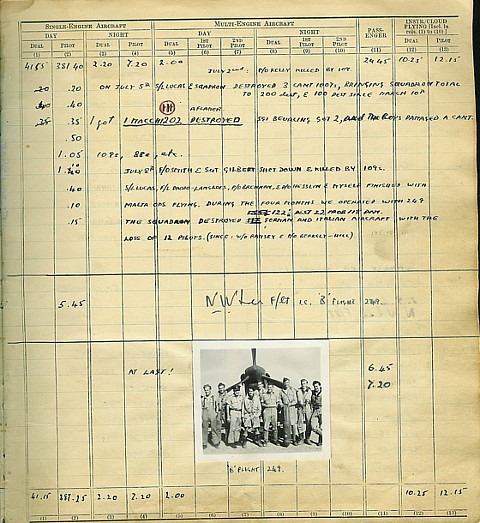 SINGLE-ENGINE AIRCRAFT MULTI-ENGINE AIRCRAFT PASS-ENGER INSTR/CLOUD FLYING [Incl. in cols. (1) to (10)]
DAY NIGHT DAY NIGHT
DUAL PILOT DUAL PILOT DUAL 1ST PILOT 2ND PILOT DUAL 1ST PILOT 2ND PILOT DUAL PILOT
(1) (2) (3) (4) (5) (6) (7) (8) (9) (10) (11) (12) (13)
41.15 381.40 2.20 7.20 2.00 24.45 10.25 12.15
JULY 2nd: P/O KELLY KILLED BY 109.
.20 .20 ON JULY 5th S/L LUCAS SQUADRON DESTROYED 3 CANT 1007s, BRINGING SQUADRON TOTAL
.40 AFLAMER. TO 200 SINCE MARCH 10th
.35 1 got 1 MACCHI 202 DESTROYED SGT BEURLING GOT 2, DAMAGED A CANT.
.50
1.05 109s, 88s, etc.
JULY 8th F/O SMITH & SGT GILBERT SHOT DOWN & KILLED BY 109s.
.40 S/L LUCAS, & MYSELF FINISHED WITH
.10 MALTA OPS FLYING. DURING THE FOUR MONTHS WE OPERATED WITH 249
.15 THE SQUADRON DESTROYED GERMAN AND ITALIAN AIRCRAFT WITH THE
LOSS OF 12 PILOTS.
5.45 F/Lt I.C. 'B' FLIGHT 249.
AT LAST! 6.45
7.20
'B' FLIGHT 249.
41.15 387.25 2.20 7.20 2.00 10.25 12.15
(1) (2) (3) (4) (5) (6) (7) (8) (9) (10) (11) (12) (13)